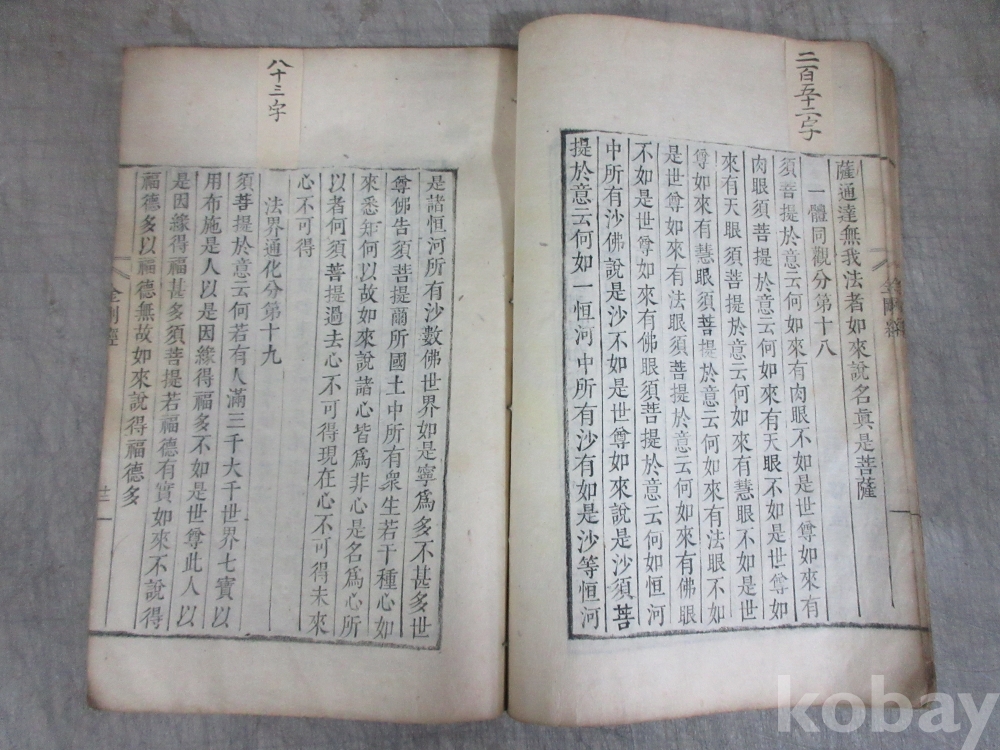 二百五十二字
薩通達無我法者如來說名眞是菩薩
一體同觀分第十八
須菩提於意云何如來有肉眼不如是世尊如來有
肉眼須菩提於意云何如來有天眼不如是世尊如
來有天眼須菩提於意云何如來有慧眼不如是世
尊如來有慧眼須菩提於意云何如來有法眼不如
是世尊如來有法眼須菩提於意云何如來有佛眼
不如是世尊如來有佛眼須菩提於意云何如恒河
中所有沙佛說是沙不如是世尊如來說是沙須菩
提於意云何如一恒河中所有沙有如是沙等恒河
八十三字
是諸恒河所有沙數佛世界如是寧爲多不甚多世
尊佛告須菩提爾所國土中所有衆生若干種心如
來悉知何以故如來說諸心皆爲非心是名爲心所
以者何須菩提過去心不可得現在心不可得未來
心不可得
法界通化分第十九
須菩提於意云何若有人滿三千大千世界七寶以
用布施是人以是因緣得福多不如是世尊此人以
是因緣得福甚多須菩提若福德有實如來不說得
福德多以福德無故如來說得福德多
金剛經
kobay